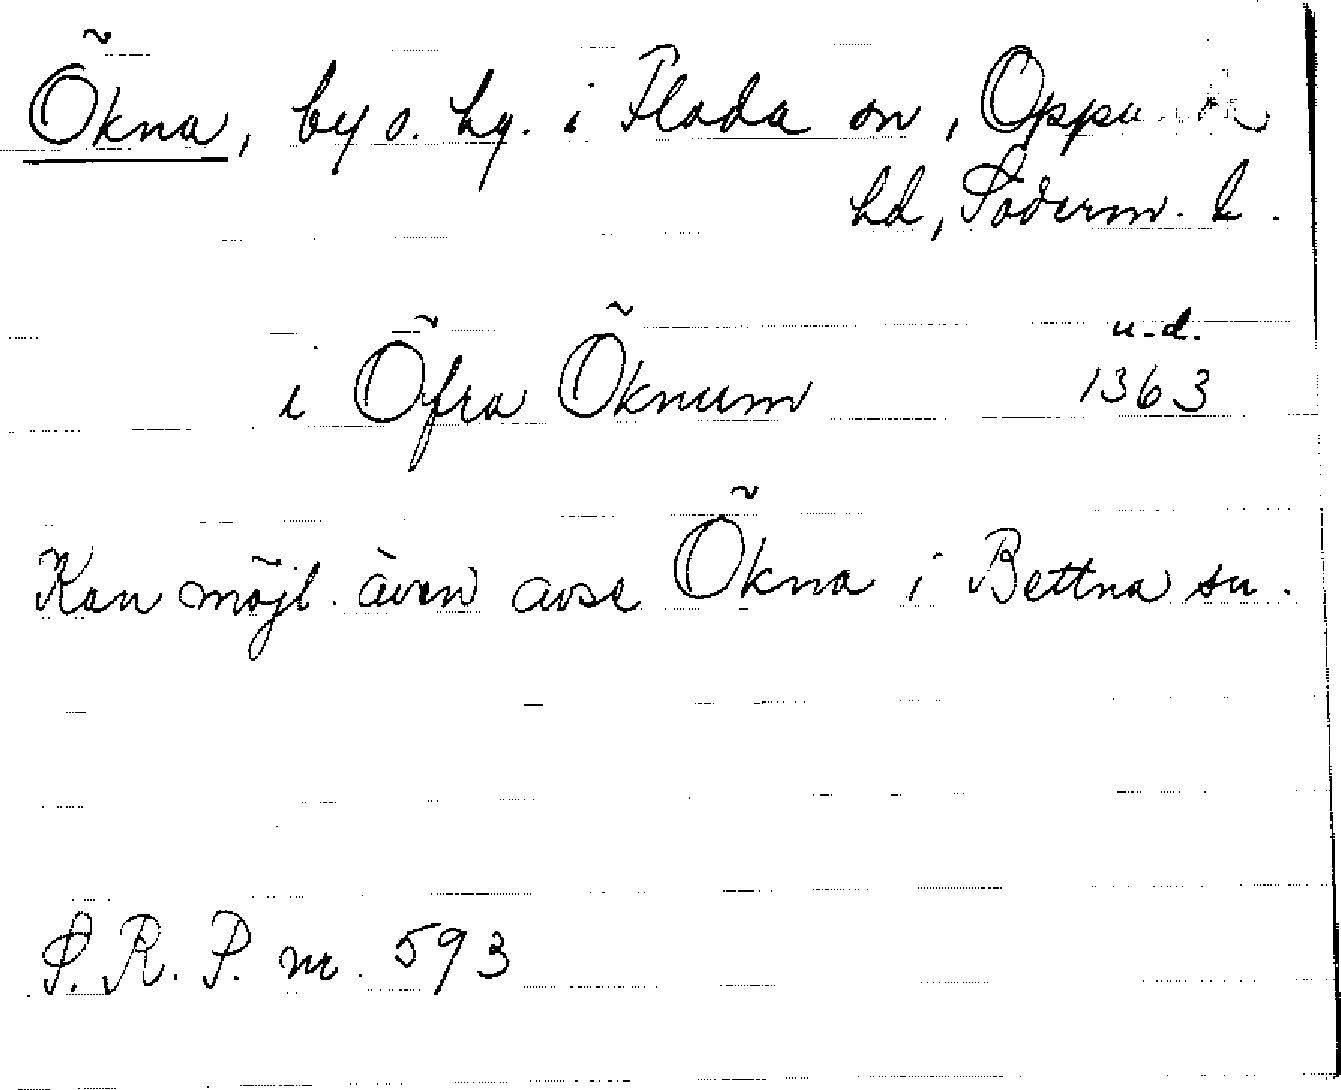 Ökna, by o. hg. i Floda sn, Oppunda
hd, Söderm. l.
u.d.
i Öfra Öknum 1363
Kan möjl. även avse Ökna i Bettna sn.
S.R.P. nr. 593